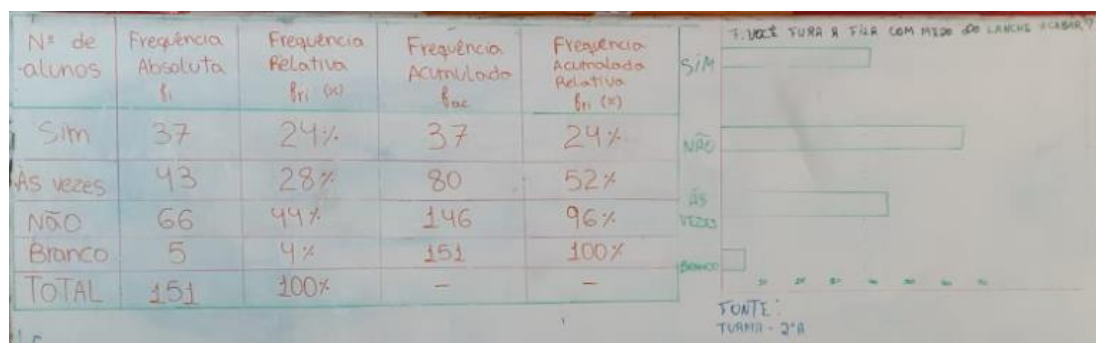 Nº de alunos | Frequência Absoluta fi | Frequência Relativa fri (%) | Frequência Acumulada fac | Frequência Acumalada Relativa fri (%)
Sim | 37 | 24% | 37 | 24%
Às vezes | 43 | 28% | 80 | 52%
Não | 66 | 44% | 146 | 96%
Branco | 5 | 4% | 151 | 100%
TOTAL | 151 | 100% | - | -
7. VOCÊ FURA A FILA COM MEDO DO LANCHE ACABAR?
SIM
NÃO
ÀS VEZES
BRANCO
FONTE:
TURMA - 2ºA